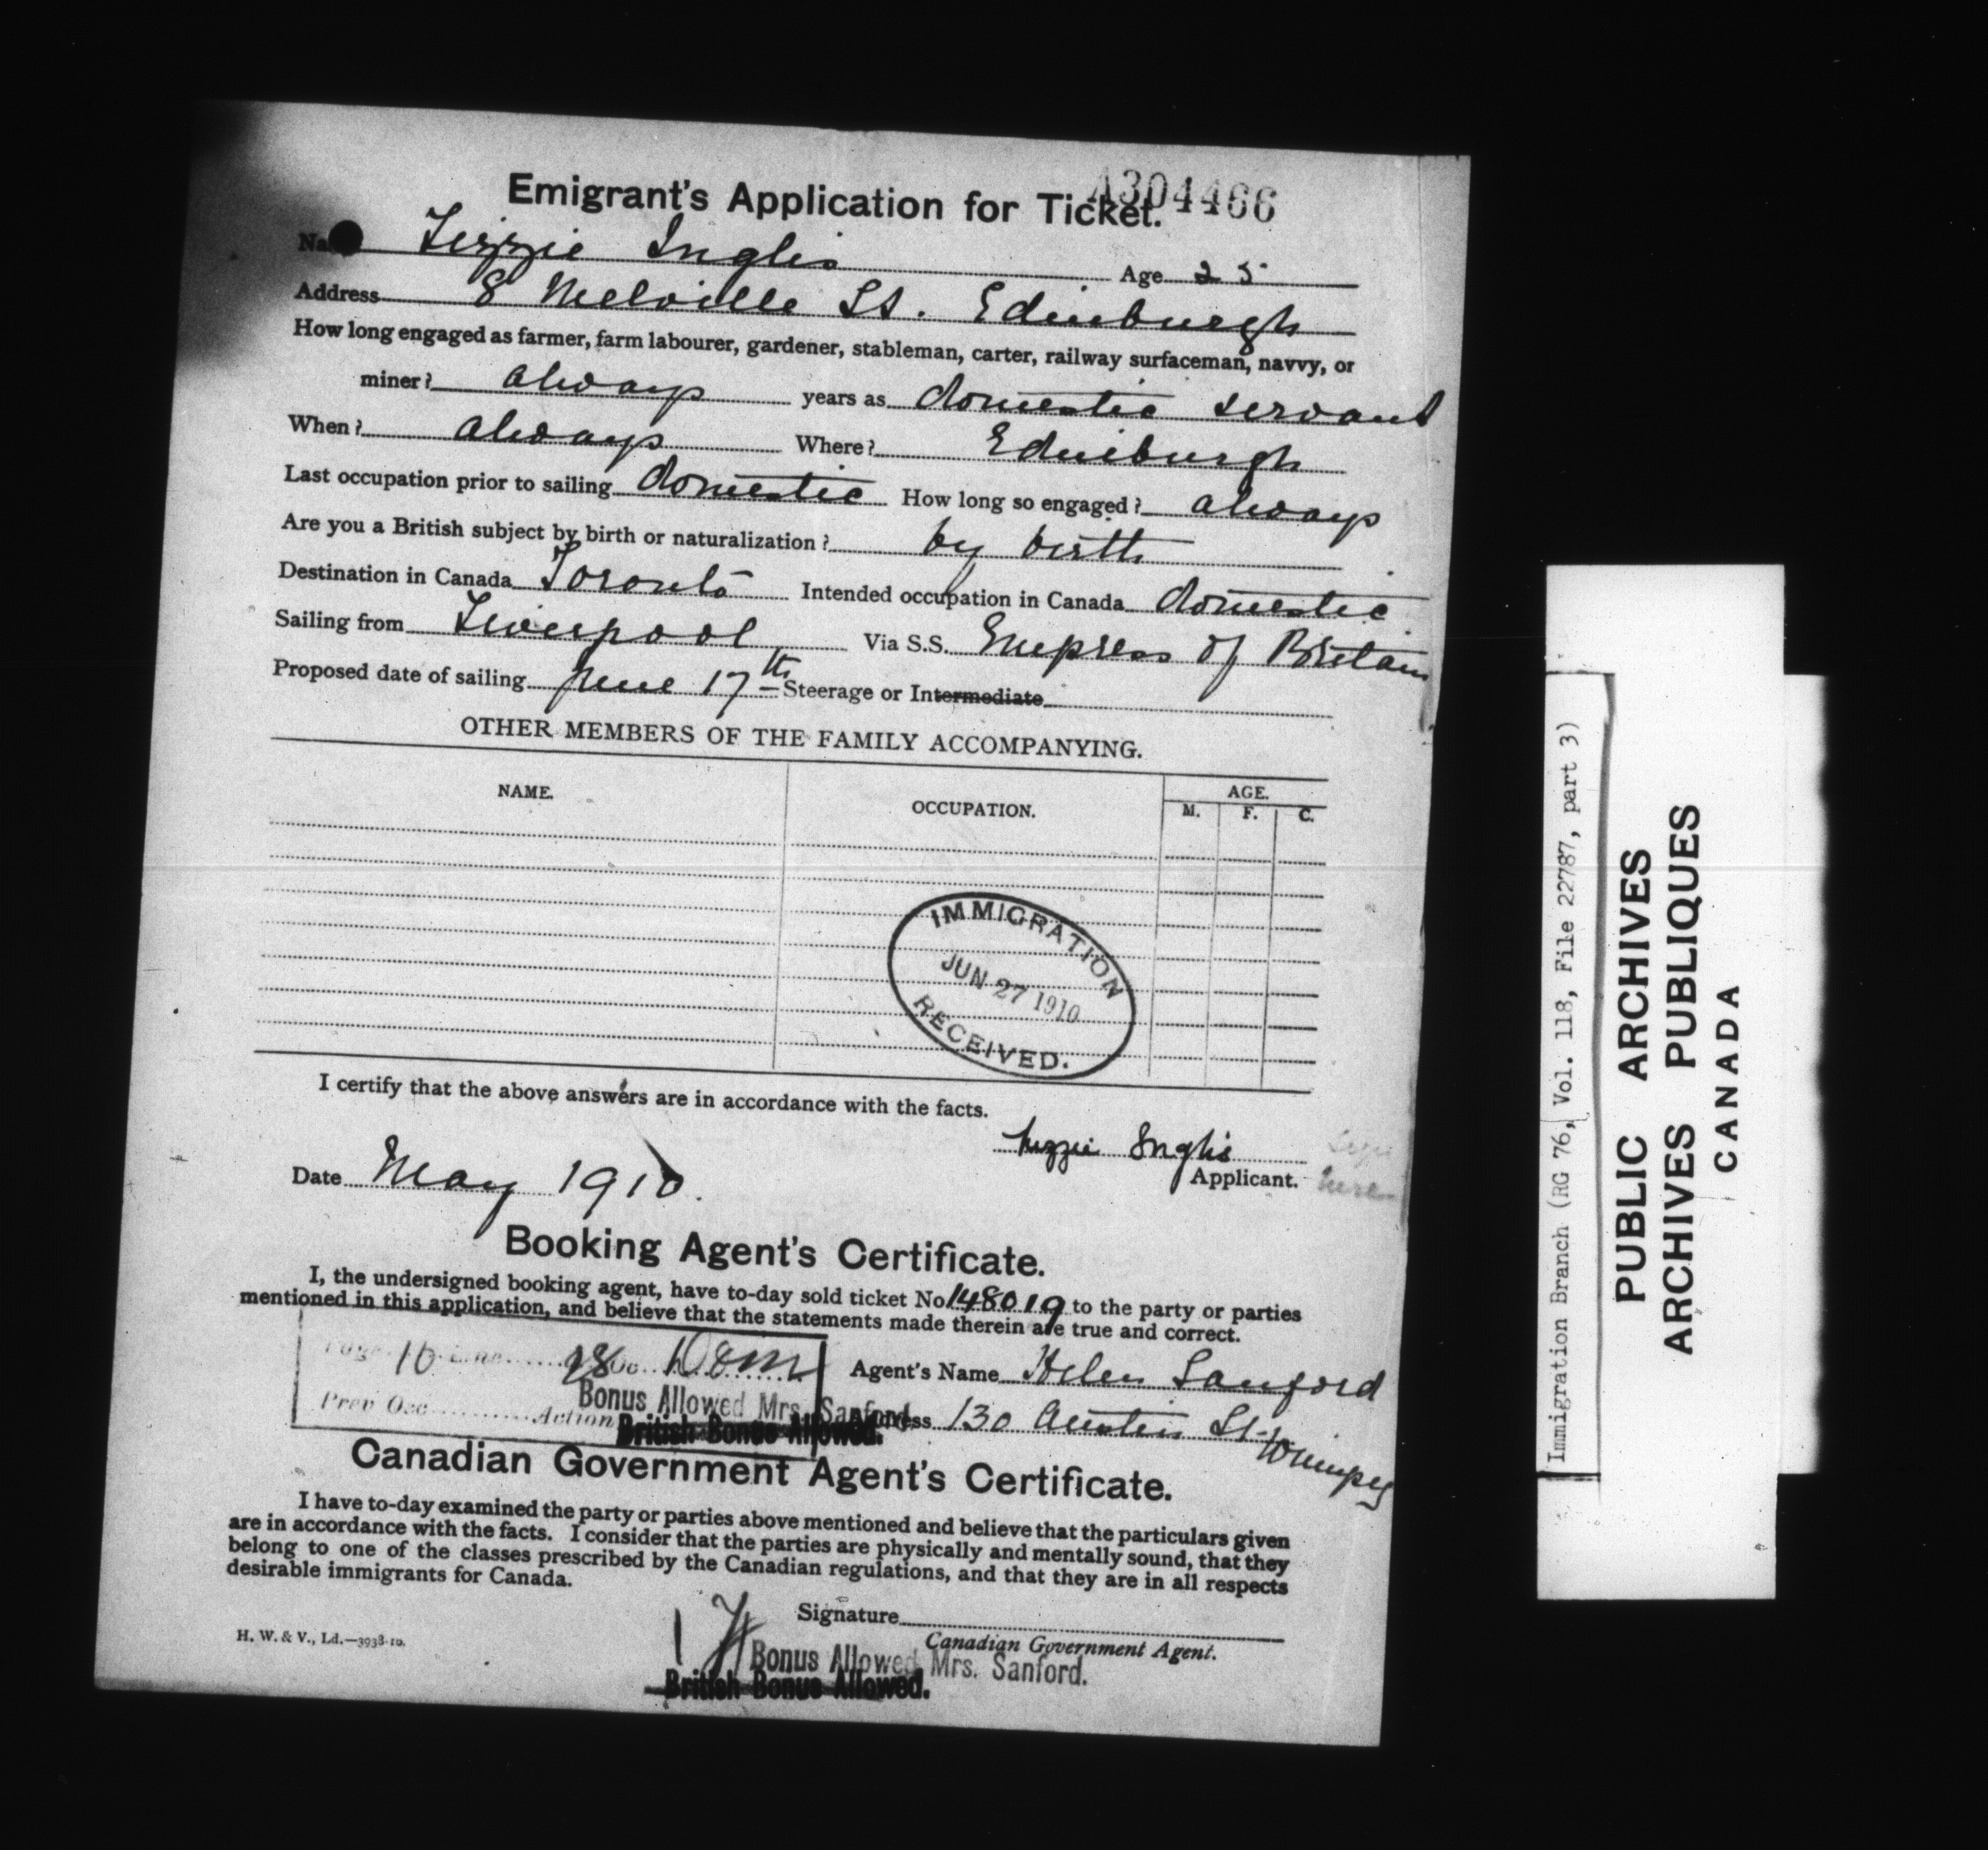 A304466
Emigrant's Application for Ticket.
Name Lizzie Inglis Age 25
Address 8 Melville St. Edinburgh
How long engaged as farmer, farm labourer, gardener, stableman, carter, railway surfaceman, navvy, or
miner? always years as domestic servant
When? always Where? Edinburgh
Last occupation prior to sailing domestic How long so engaged? always
Are you a British subject by birth or naturalization? by birth
Destination in Canada Toronto Intended occupation in Canada domestic
Sailing from Liverpool Via S.S. Empress of Britain
Proposed date of sailing June 17th Steerage or Intermediate
OTHER MEMBERS OF THE FAMILY ACCOMPANYING.
NAME. OCCUPATION. AGE.
M. F. C.
IMMIGRATION
JUN 27 1910
RECEIVED.
I certify that the above answers are in accordance with the facts.
Lizzie Inglis
Date May 1910. Applicant. here
Booking Agent's Certificate.
I, the undersigned booking agent, have to-day sold ticket No 148019 to the party or parties
mentioned in this application, and believe that the statements made therein are true and correct.
Page 16 Line 28 Oc. Dom
Agent's Name Helen Sanford
Bonus Allowed Mrs. Sanford.
Prev Occ Action
Address 130 Austin St. Winnipeg
British Bonus Allowed.
Canadian Government Agent's Certificate.
I have to-day examined the party or parties above mentioned and believe that the particulars given
are in accordance with the facts. I consider that the parties are physically and mentally sound, that they
belong to one of the classes prescribed by the Canadian regulations, and that they are in all respects
desirable immigrants for Canada.
Signature
Canadian Government Agent.
H. W. & V., Ld.—3938-10.
Bonus Allowed Mrs. Sanford.
British Bonus Allowed.
Immigration Branch (RG 76, Vol. 118, File 22787, part 3)
PUBLIC ARCHIVES
ARCHIVES PUBLIQUES
CANADA